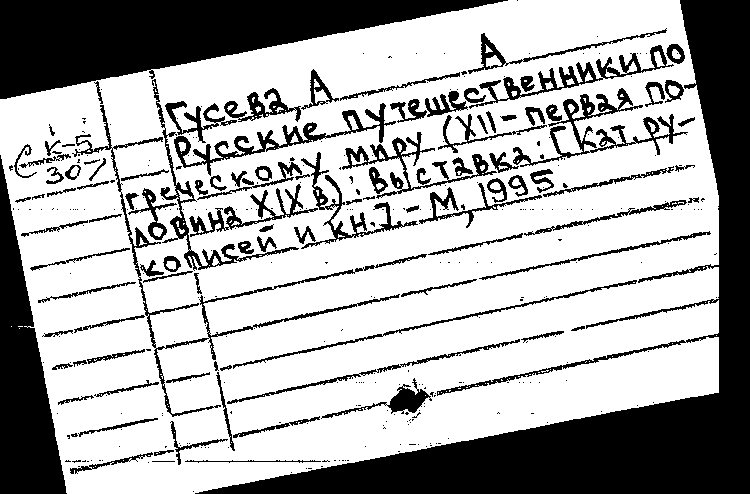 Гусева, А А
Русские путешественники по
греческому миру (XII – первая по-
ловина XIX в.) : Выставка : [Кат. ру-
кописей и кн.]. – М., 1995.
К-5
307